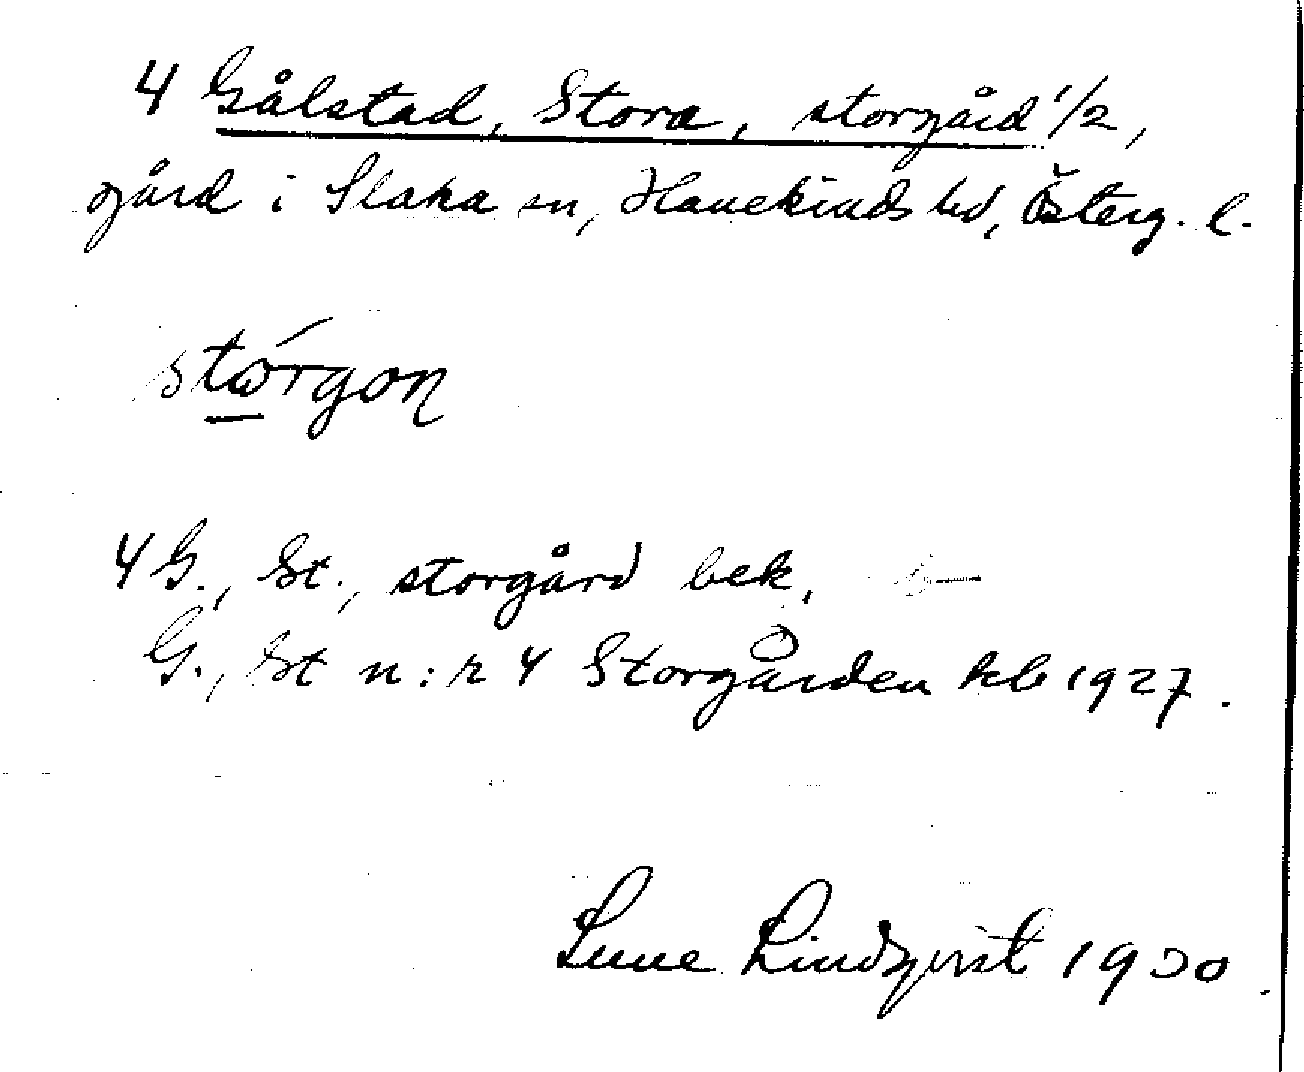 4 Gålstad, Stora, storgård 1/2,
gård i Slaka sn, Hanekinds hd, Österg. l.
stórgoɳ
4 G., St., storgård bek.
G., St n:r 4 Storgården kb 1927.
Sune Lindqvist 1930.